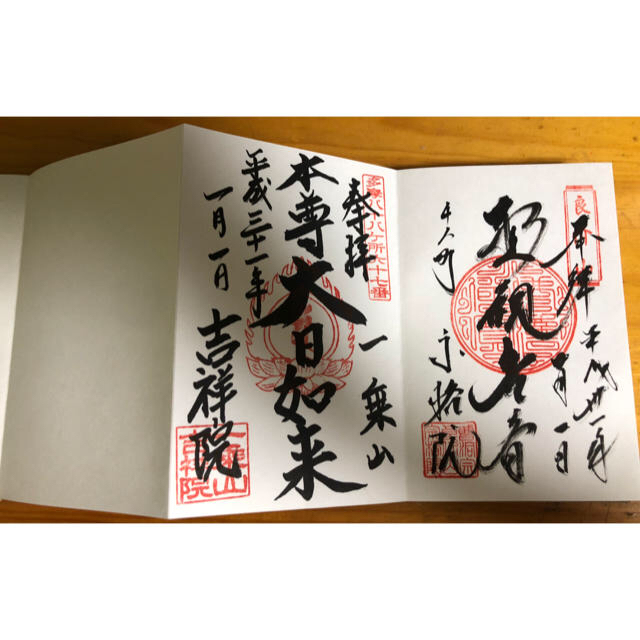 奉拝
平成卅一年
一月一日
聖観世音
千人町
宗格院
多摩八十八ヶ所六十七番
奉拝
一乗山
本尊大日如来
平成三十一年
一月一日
吉祥院
一乗山
吉祥院